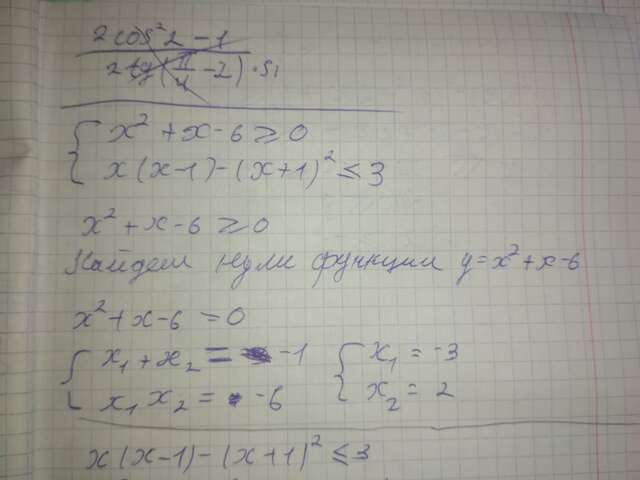 2cos²2 - 1
2tg(π/4 - 2) · si
x² + x - 6 ≥ 0
x(x-1) - (x+1)² ≤ 3
x² + x - 6 ≥ 0
Найдем нули функции y = x² + x - 6
x² + x - 6 = 0
x₁ + x₂ = -1 x₁ = -3
x₁ x₂ = -6 x₂ = 2
x(x-1) - (x+1)² ≤ 3